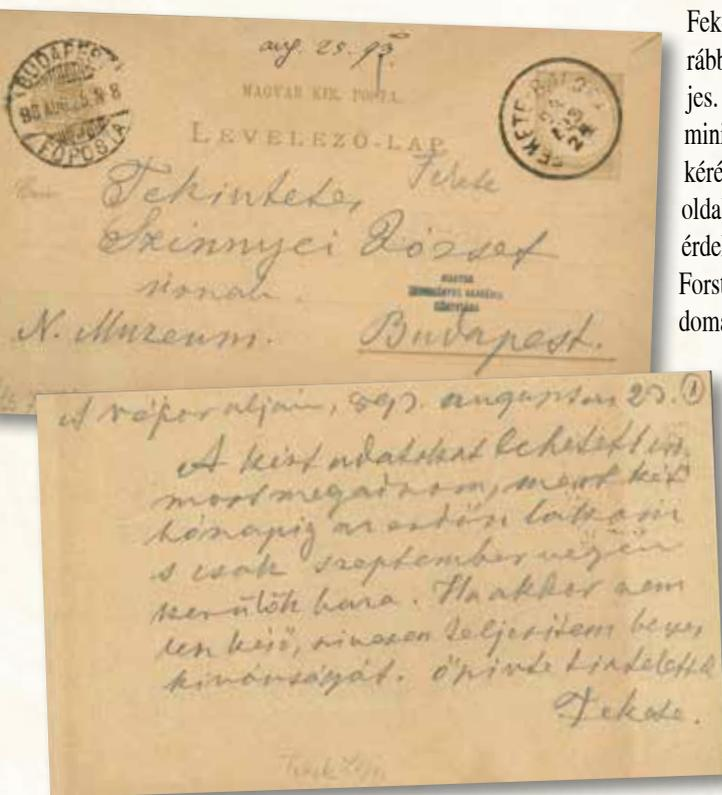 BUDAPEST
93 AUG 25 N 8
FŐPOSTA
aug. 25. 93.
MAGYAR KIR. POSTA.
LEVELEZŐ-LAP
FEKETE-BALOG
Fekete
Tekintetes
Szinnyei József
urnak
MAGYAR
TUDOMÁNYOS AKADÉMIA
KÖNYVTÁRA
N. Muzeum. Budapest.
A vépor alján, 893. augusztus 23. 1
A kért adatokat lehetetlen
most megadnom, mert két
hónapig az erdőn lakom
s csak szeptember végén
kerülök haza. Ha akkor nem
len késő, szivesen teljesitem becses
kivánságát. őszinte tisztelettel
Fekete.
Fek
rább
jes.
mini
kéré
olda
érde
Forst
doma